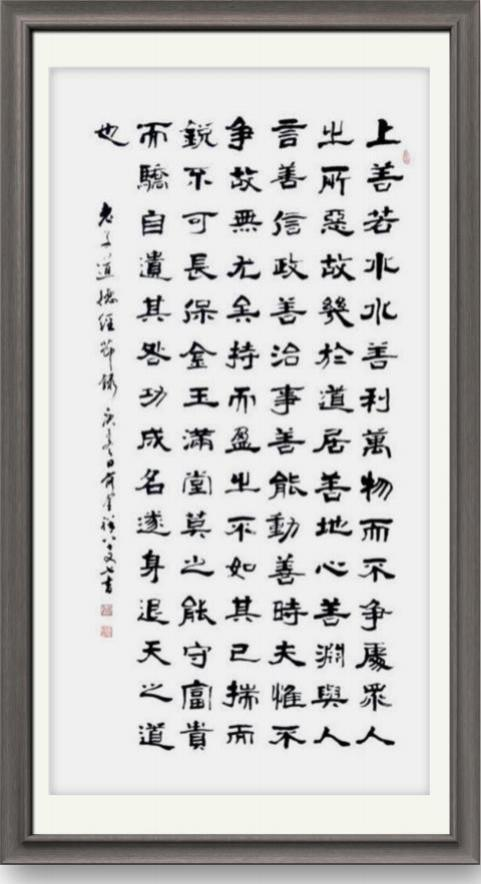 上善若水水善利萬物而不争處眾人
之所惡故幾於道居善地心善淵與人
言善信政善治事善能動善時夫惟不
争故無尤矣持而盈之不如其已揣而
銳不可長保金玉滿堂莫之能守富貴
而驕自遺其咎功成名遂身退天之道
也
老子道德經節錄